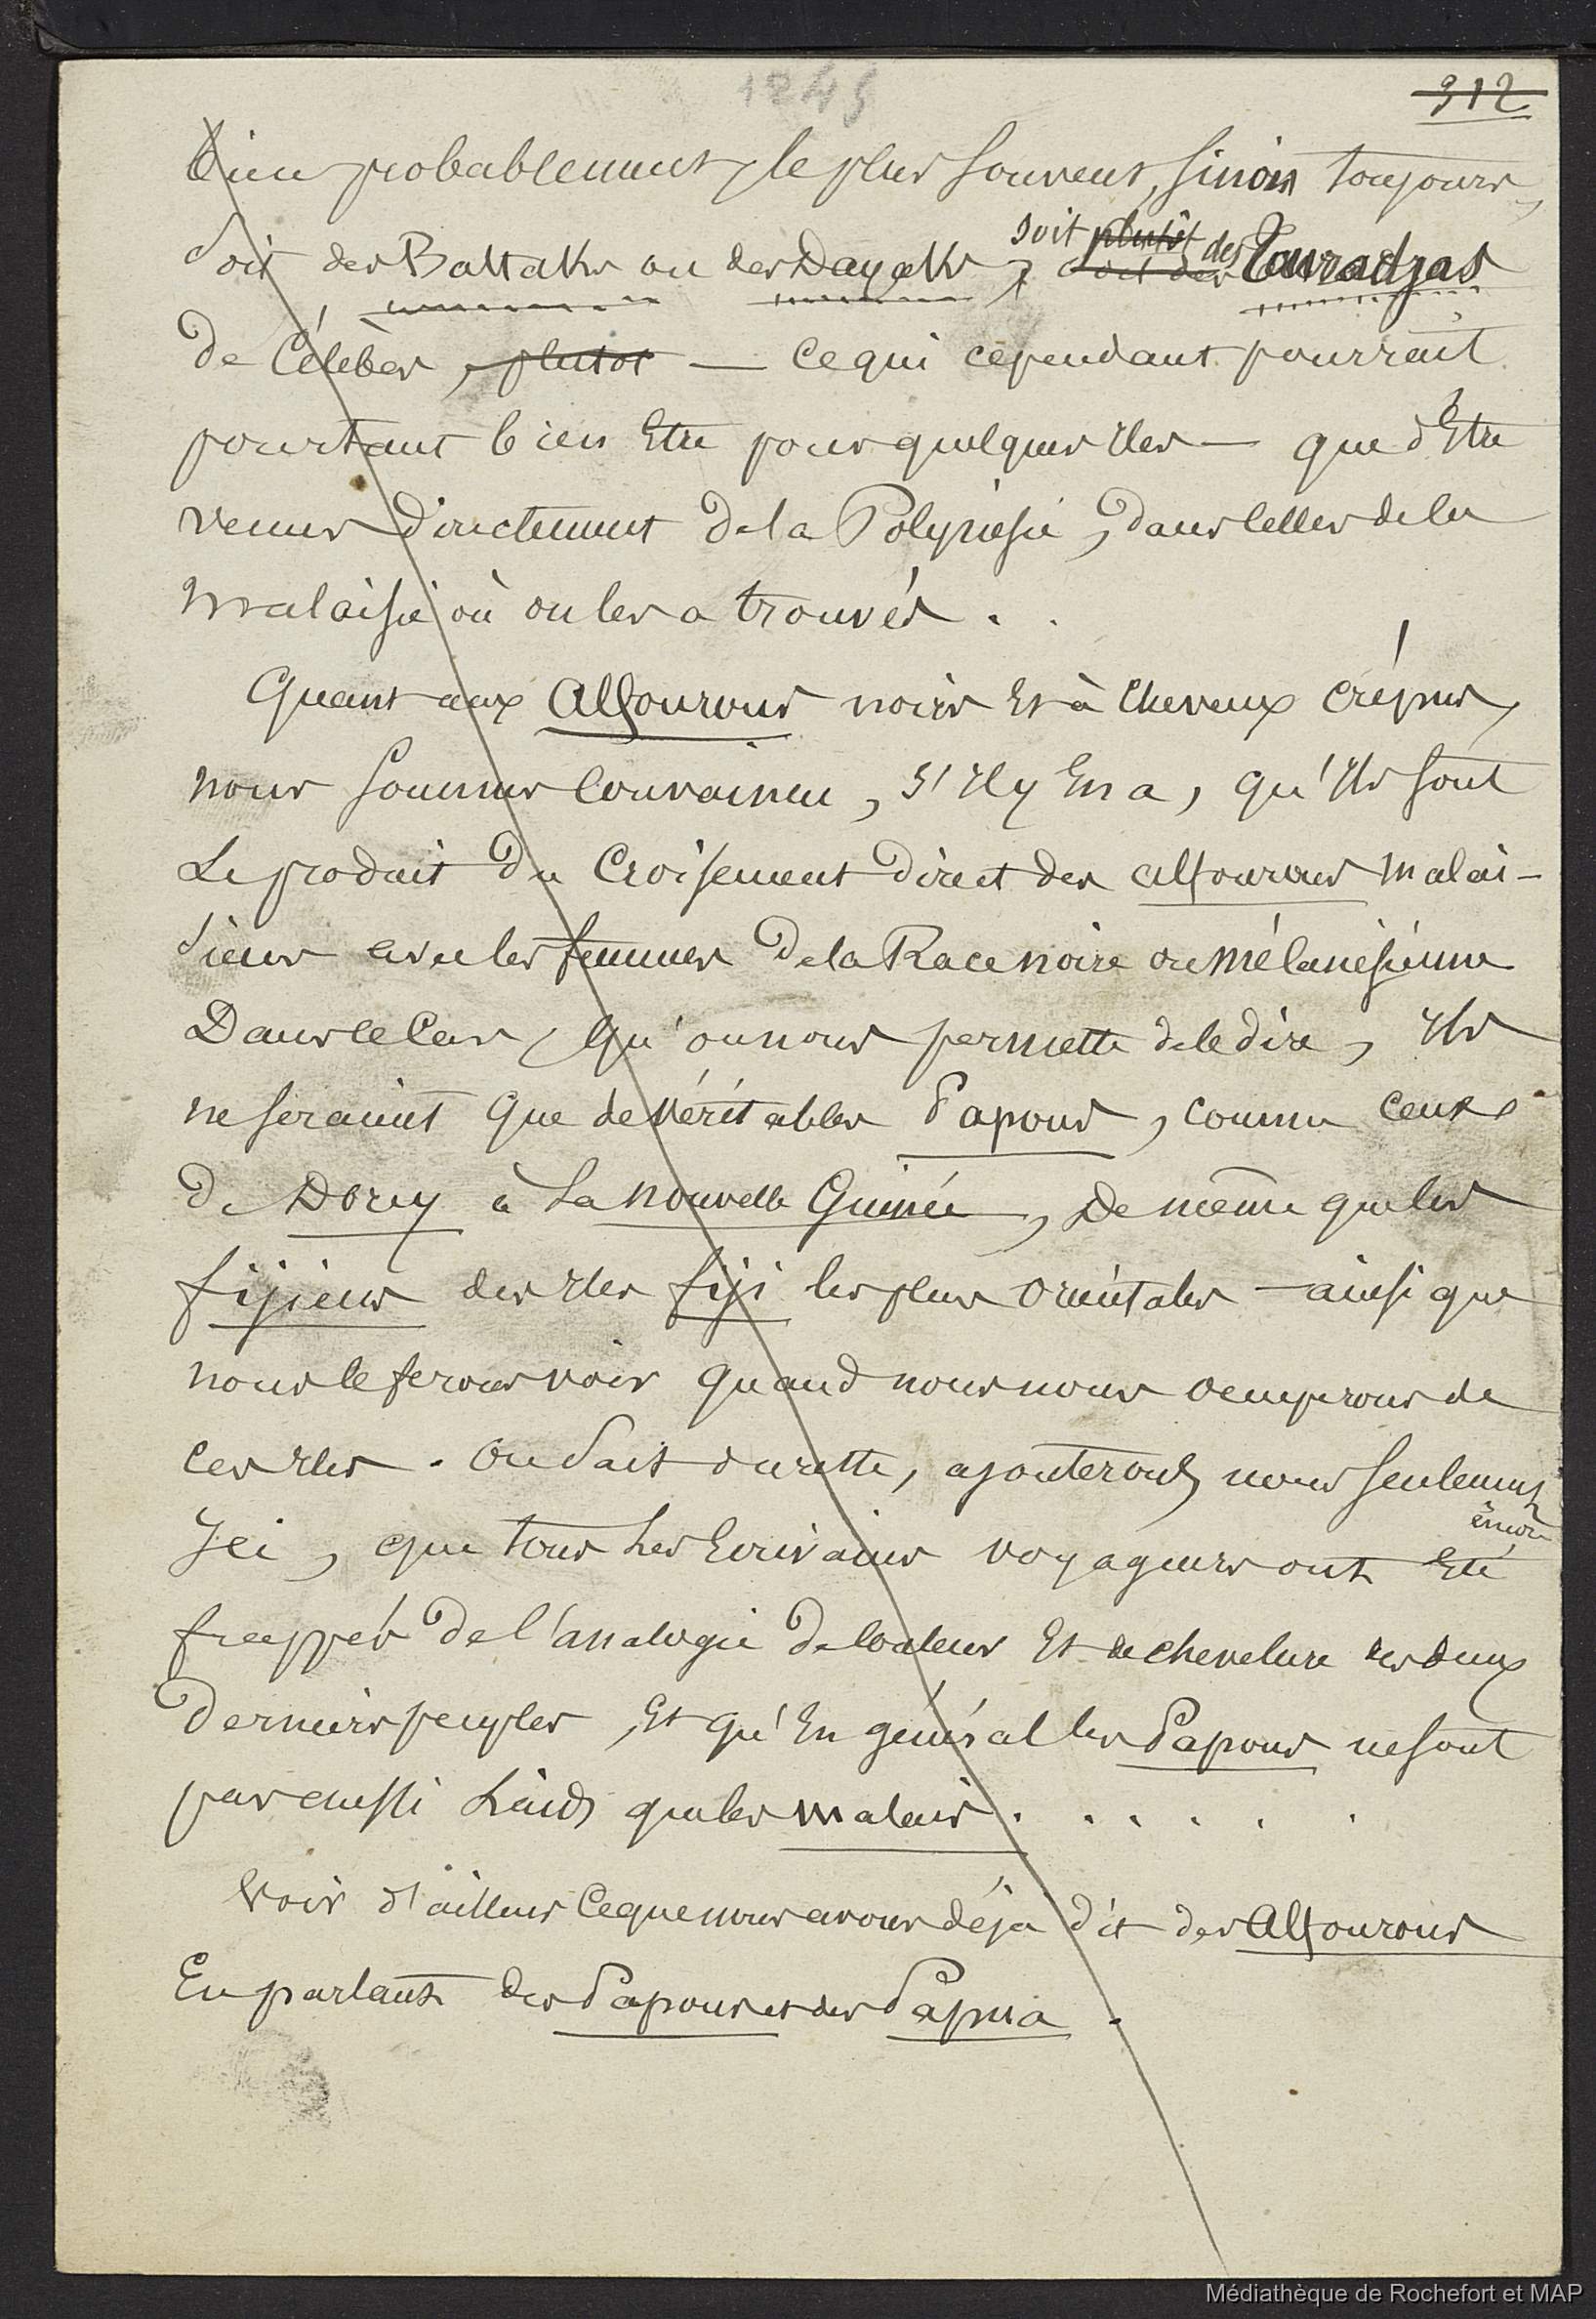 1245
312
bien probablement, le plus souvent, sinon toujours,
soit plutôt des
soit des Battaks ou des Dayaks, soit des Touradjas
de Célèbes, plutot — ce qui cependant pourrait
pourtant bien Etre pour quelques Iles — que d'Etre
venus directement de la Polynésie, dans celles de la
malaisie où on les a trouvés . .
Quant aux Alfourous noirs Et à cheveux crépus,
nous sommes convaincu, s'Il y En a, qu'Ils sont
Le produit du Croisement direct des alfourous malai-
siens avec les femmes de la Race noire ou mélanésienne
Dans ce Cas, qu'on nous permette de le dire, Ils
ne seraient que de véritables Papous, comme ceux
de Dorey à La nouvelle Guinée, de même que les
fijiens des Iles fiji les plus orientales — ainsi que
nous le ferons voir quand nous nous occuperons de
ces Iles. On sait du reste, ajouterons nous seulement
encore
Ici, que tous Les Ecrivains voyageurs ont Eté
frappés de l'analogie de couleur Et de chevelure des deux
derniers peuples, Et qu'En général les Papous ne sont
pas aussi Laids que les malais . . . . . .
Voir d'ailleurs Ce que nous avons déjà dit des Alfourous
En parlant des Papous et des Papua .
Médiathèque de Rochefort et MAP